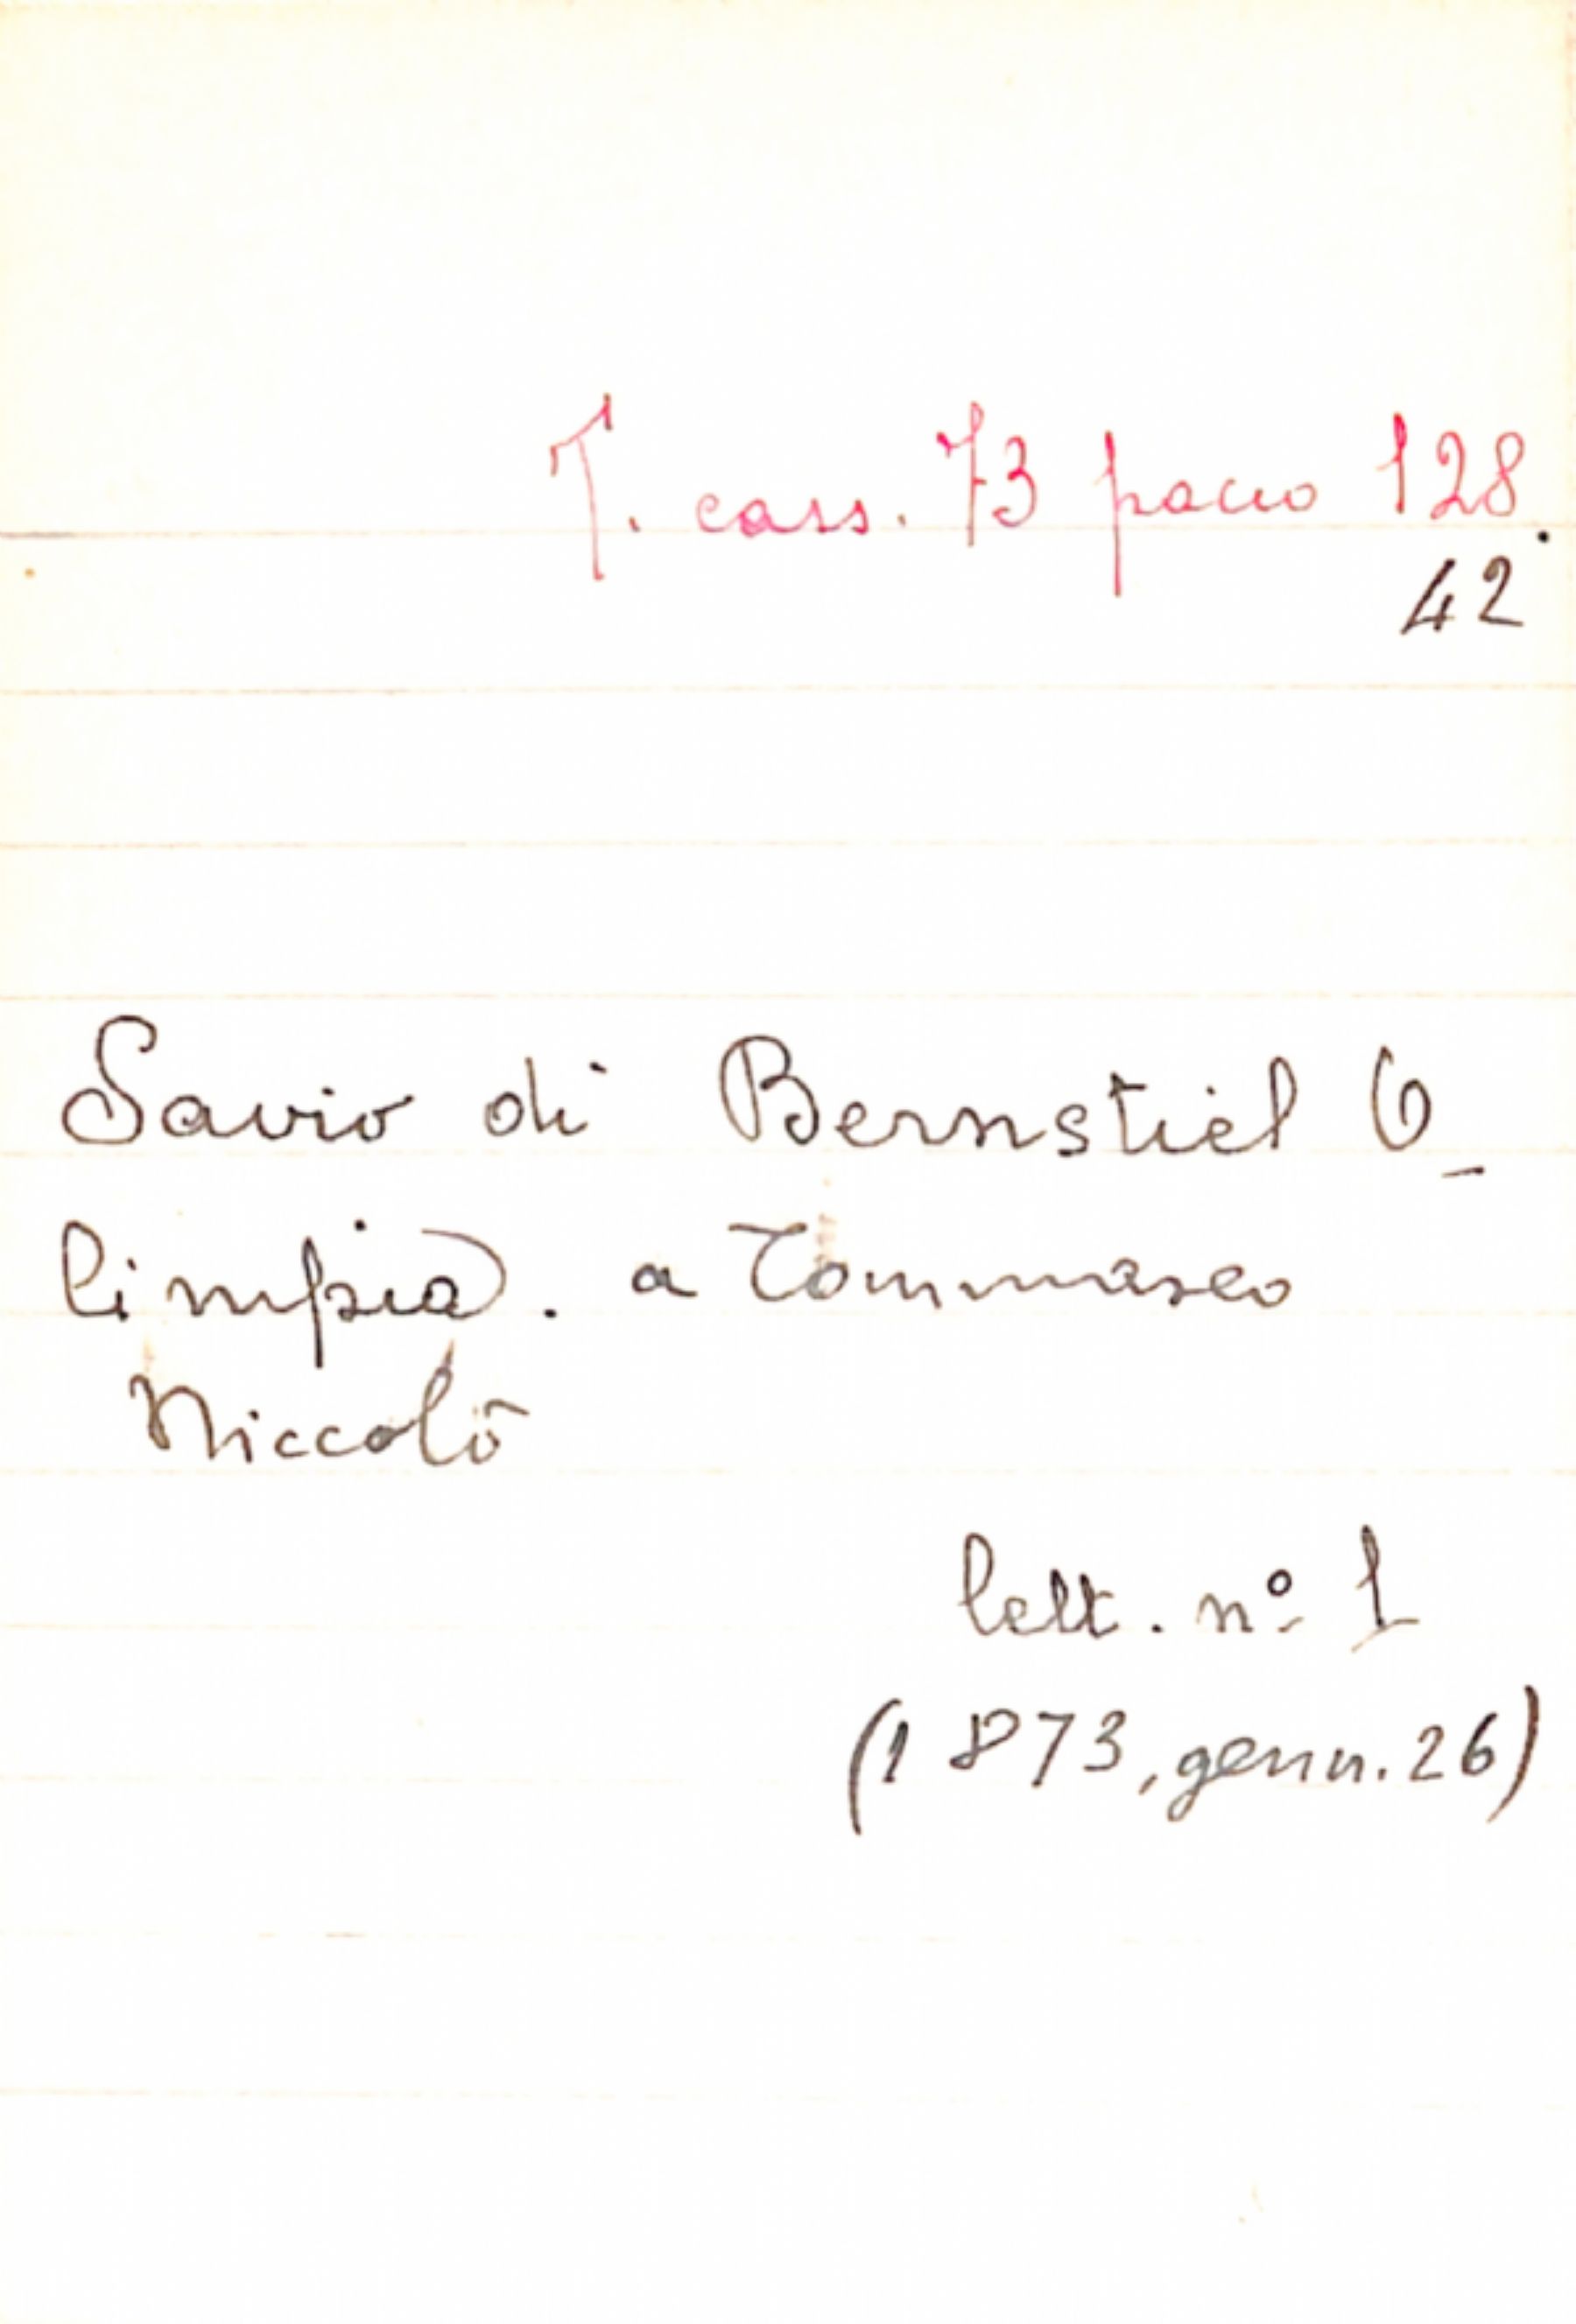 T. cass. 73 pacco 128.
42
Savio di Bernstiel O_
limpia. a Tommaseo
Niccolò
lett. nº 1
(1873, genn. 26)